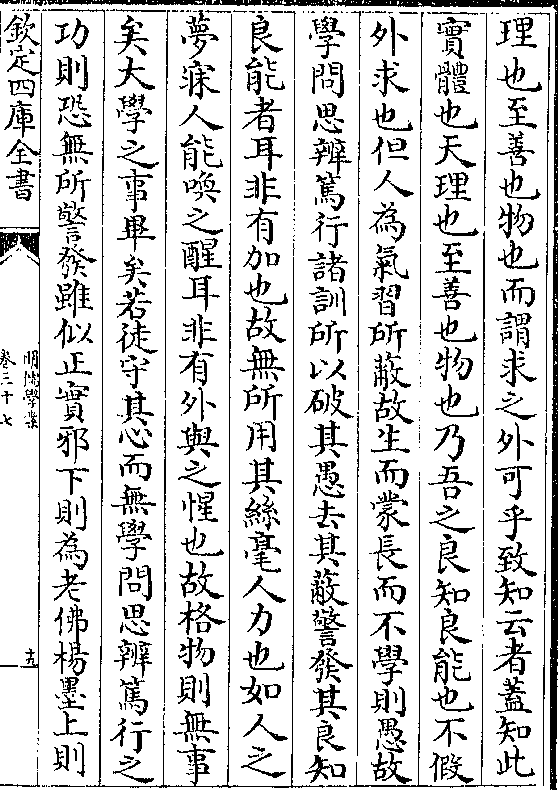 理也至善也物也而謂求之外可乎致知云者蓋知此
實體也天理也至善也物也乃吾之良知良能也不假
外求也但人為氣習所蔽故生而蒙長而不學則愚故
學問思辨篤行諸訓所以破其愚去其蔽警發其良知
良能者耳非有加也故無所用其絲毫人力也如人之
夢寐人能喚之醒耳非有外與之惺也故格物則無事
矣大學之事畢矣若徒守其心而無學問思辨篤行之
功則恐無所警發雖似正實邪下則為老佛楊墨上則
欽定四庫全書
明儒學案
卷三十七
十五